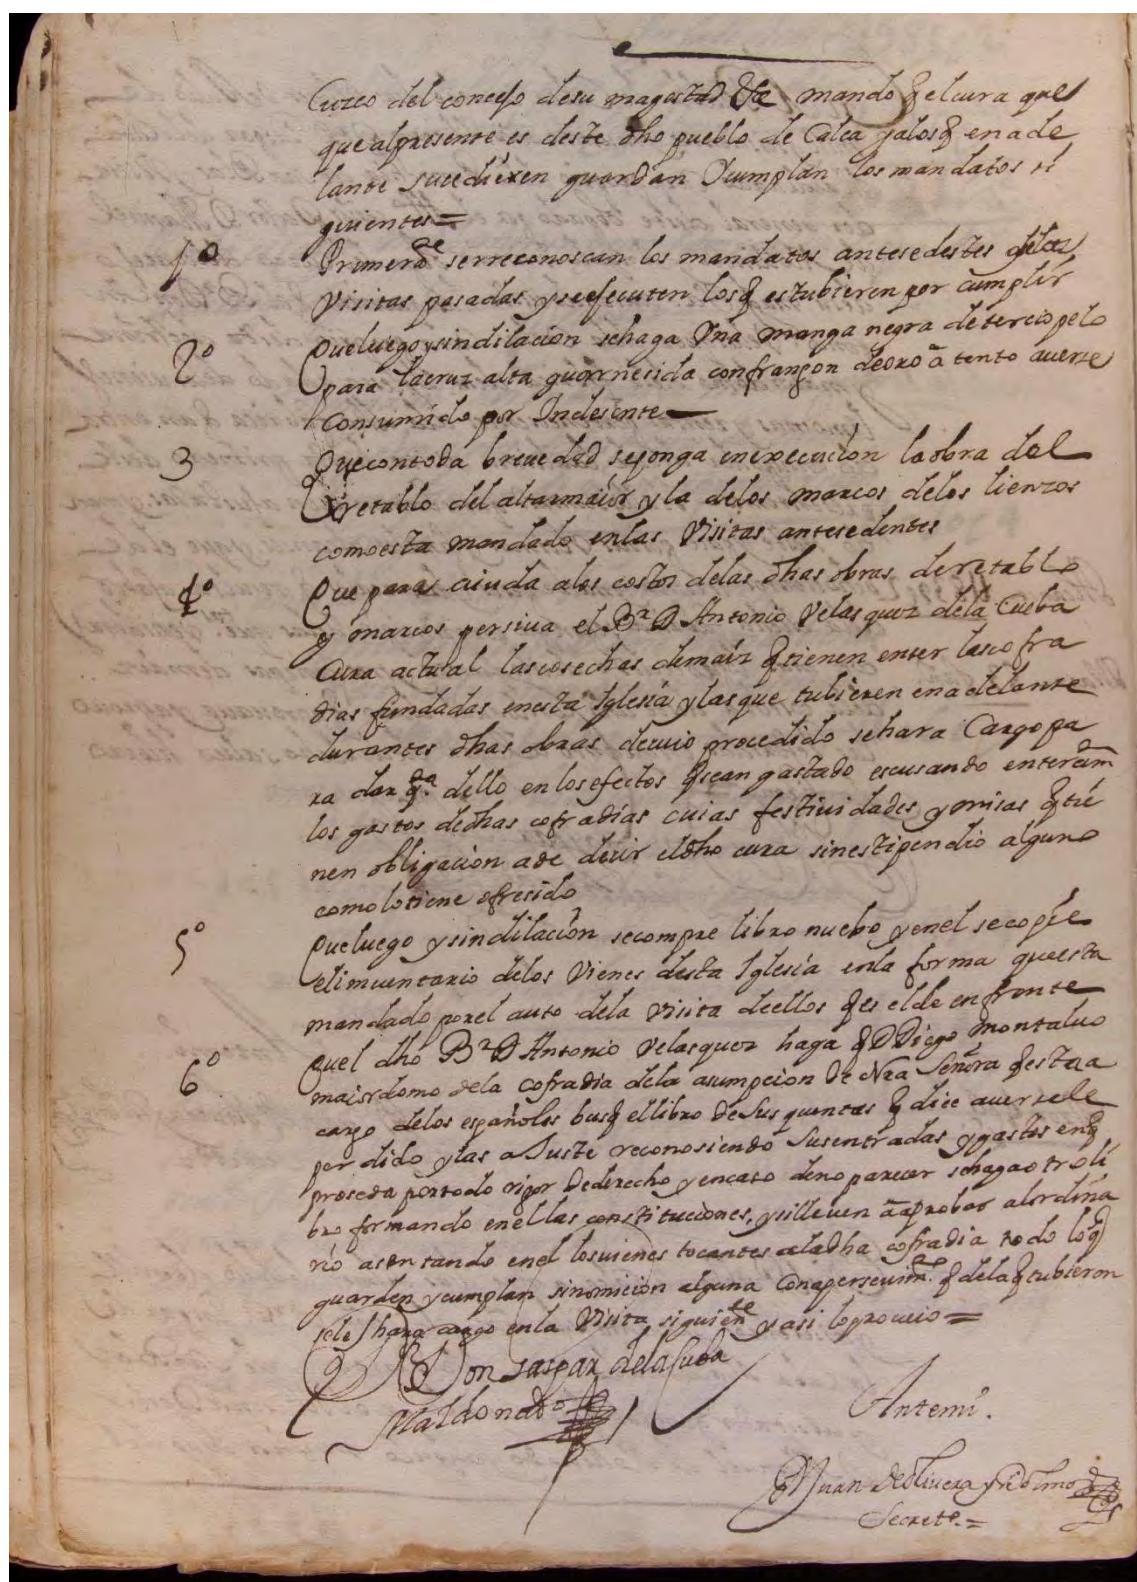 Cuzco del consejo de su magestad &c mando q el cura que
que al presente es deste dho pueblo de Calca y alos q en ade
lante sucedieren guarden Y cumplan los mandatos si
guientes =
1º Primeramte se rreconoscan los mandatos antesedestes delas
Visitas pasadas y se ejecuten los q estubieren por cumplir
2º Que luego y sin dilacion se haga Vna manga negra de terciopelo
para la cruz alta guarnesida con franjon de oro atento averse
Consumido por Indesente
3 Que con toda brevedad se ponga en execucion la obra del
retablo del altar maior y la de los marcos delos lienzos
como esta mandado en las Visitas antesedentes
4º Que para aiuda a los costos delas dhas obras de retablo
y marcos persiva el Br D Antonio Velasquez dela Cueba
Cura actual las cosechas de maiz q tienen enter las cofra
dias fundadas en esta Iglesia y las que tubieren en adelante
durantes dhas obras de cuio procedido se hara Cargo pa
ra dar qta dello en los efectos q sean gastado escusando enteramte
los gastos de dhas cofradias cuias festividades y misas q tie
nen obligacion a de decir el dho cura sin estipendio alguno
como lo tiene ofresido
5º Que luego y sin dilacion se compre libro nuebo y en el se copie
el imventario delos Vienes desta Iglesia en la forma que esta
mandado por el auto dela Visita de ellos q es el de enfrente
6º Quel dho Br D Antonio Velasquez haga q D Diego Montalvo
maiordomo dela cofradia dela asumpcion de Nra Señora q esta a
cargo delos españoles busq el libro de sus quentas q dice aversele
perdido y las ajuste reconosiendo sus entradas y gastos en q
proseda por todo rigor de derecho y en caso de no parecer se haga otro li
bro formando en el las constituciones, y se lleven a aprobar al ordina
rio asentando en el los vienes tocantes a la dha cofradia todo lo q
guarden y cumplan sin omicion alguna Con apersevimto. q dela q tubieren
se les hara cargo en la Visita siguiente y asi lo proveio =
Don Gaspar dela Cueba
Maldonado
Ante mi.
Juan de Olivera
Secreto. =